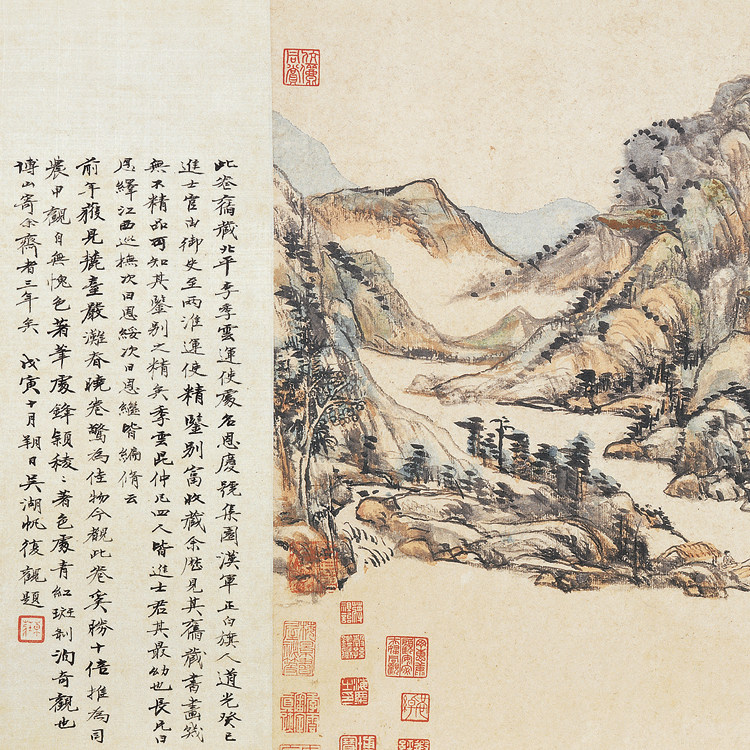 此卷舊藏北平李季雲運使處名恩慶號集園漢軍正白旗人道光癸巳
進士官由御史至兩淮運使精鑒別富收藏余歷見其舊藏書畫幾
無不精品可知其鑒別之精矣季雲昆仲凡四人皆進士君其最幼也長兄曰
恩繹江西巡撫次曰恩綬次曰恩繼皆編脩云
前年獲見麓臺嚴灘春曉卷驚為佳物今觀此卷奚勝十倍推為司
農甲觀自無愧色著筆處鋒穎稜〻著色處青紅斑剝洵奇觀也
博山寄余齋者三年矣 戊寅十月朔日吳湖帆復觀題